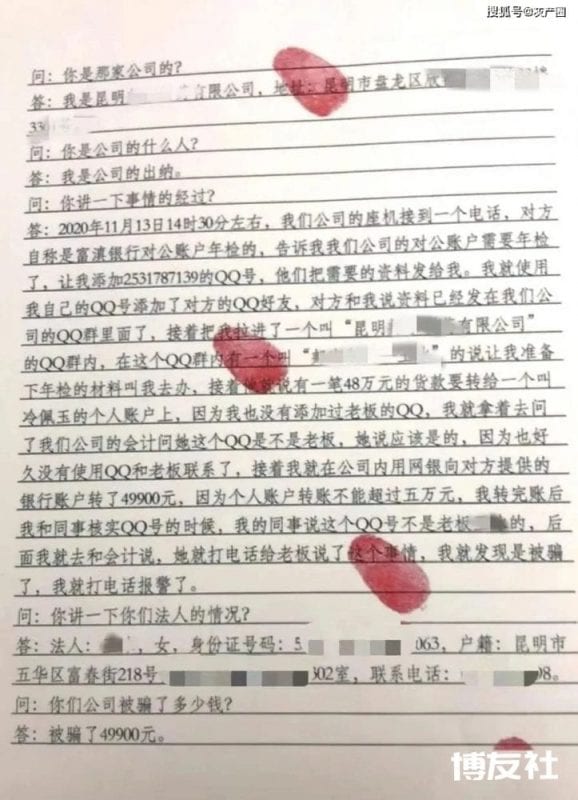 搜狐号@农产圈
问：你是那家公司的?
答：我是昆明 有限公司，地址：昆明市盘龙区欣
330
问：你是公司的什么人?
答：我是公司的出纳。
问：你讲一下事情的经过?
答：2020年11月13日14时30分左右，我们公司的座机接到一个电话，对方
自称是富滇银行对公账户年检的，告诉我我们公司的对公账户需要年检
了，让我添加2531787139的QQ号，他们把需要的资料发给我。我就使用
我自己的QQ号添加了对方的QQ好友，对方和我说资料已经发在我们公
司的QQ群里面了，接着把我拉进了一个叫“昆明 有限公司”
的QQ群内，在这个QQ群内有一个叫“ ”的说让我准备
下年检的材料叫我去办，接着他就说有一笔48万元的货款要转给一个叫
冷佩玉的个人账户上，因为我也没有添加过老板的QQ，我就拿着去问
了我们公司的会计问她这个QQ是不是老板，她说应该是的，因为也好
久没有使用QQ和老板联系了，接着我就在公司内用网银向对方提供的
银行账户转了49900元，因为个人账户转账不能超过五万元，我转完账后
我和同事核实QQ号的时候，我的同事说这个QQ号不是老板 的，后
面我就去和会计说，她就打电话给老板说了这个事情，我就发现是被骗
了，我就打电话报警了。
问：你讲一下你们法人的情况?
答：法人： ，女，身份证号码：5 063，户籍：昆明市
五华区富春街218号 302室，联系电话： 08。
问：你们公司被骗了多少钱?
答：被骗了49900元。
博友社